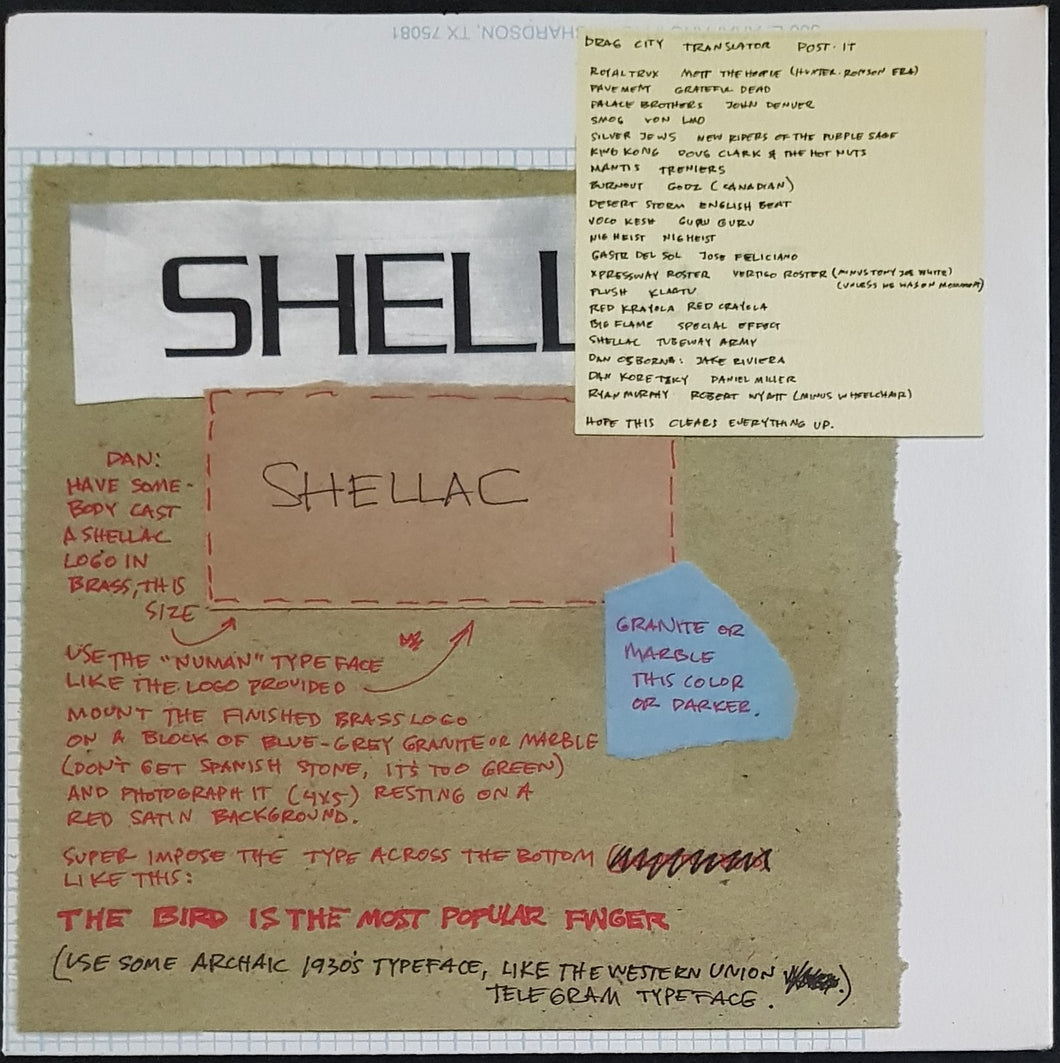 HARDSON, TX 75081
DRAG CITY TRANSLATOR POST-IT
ROYAL TRUX MOTT THE HOOPLE (HUNTER-RONSON ERA)
PAVEMENT GRATEFUL DEAD
PALACE BROTHERS JOHN DENVER
SMOG VON LMO
SILVER JEWS NEW RIDERS OF THE PURPLE SAGE
KING KONG DOUG CLARK & THE HOT NUTS
MANTIS TRENIERS
BURNOUT GODZ (CANADIAN)
DESERT STORM ENGLISH BEAT
VOCO KESH GURU GURU
NIG HEIST NIG HEIST
GASTR DEL SOL JOSE FELICIANO
XPRESSWAY ROSTER VERTIGO ROSTER (MINUS TONY JOE WHITE)
(UNLESS HE WAS ON MONUMENT)
PLUSH KLAATU
RED KRAYOLA RED CRAYOLA
BIG FLAME SPECIAL EFFECT
SHELLAC TUBEWAY ARMY
DAN OSBORNE: JAKE RIVIERA
DAN KORETZKY DANIEL MILLER
RYAN MURPHY ROBERT WYATT (MINUS WHEELCHAIR)
HOPE THIS CLEARS EVERYTHING UP.
SHELL
SHELLAC
DAN:
HAVE SOME-
BODY CAST
A SHELLAC
LOGO IN
BRASS, THIS
SIZE
GRANITE OR
MARBLE
THIS COLOR
OR DARKER.
USE THE "NUMAN" TYPEFACE
LIKE THE LOGO PROVIDED
MOUNT THE FINISHED BRASS LOGO
ON A BLOCK OF BLUE-GREY GRANITE OR MARBLE
(DON'T GET SPANISH STONE, IT'S TOO GREEN)
AND PHOTOGRAPH IT (4X5) RESTING ON A
RED SATIN BACKGROUND.
SUPER IMPOSE THE TYPE ACROSS THE BOTTOM
LIKE THIS:
THE BIRD IS THE MOST POPULAR FINGER
(USE SOME ARCHAIC 1930'S TYPEFACE, LIKE THE WESTERN UNION
TELEGRAM TYPEFACE.)